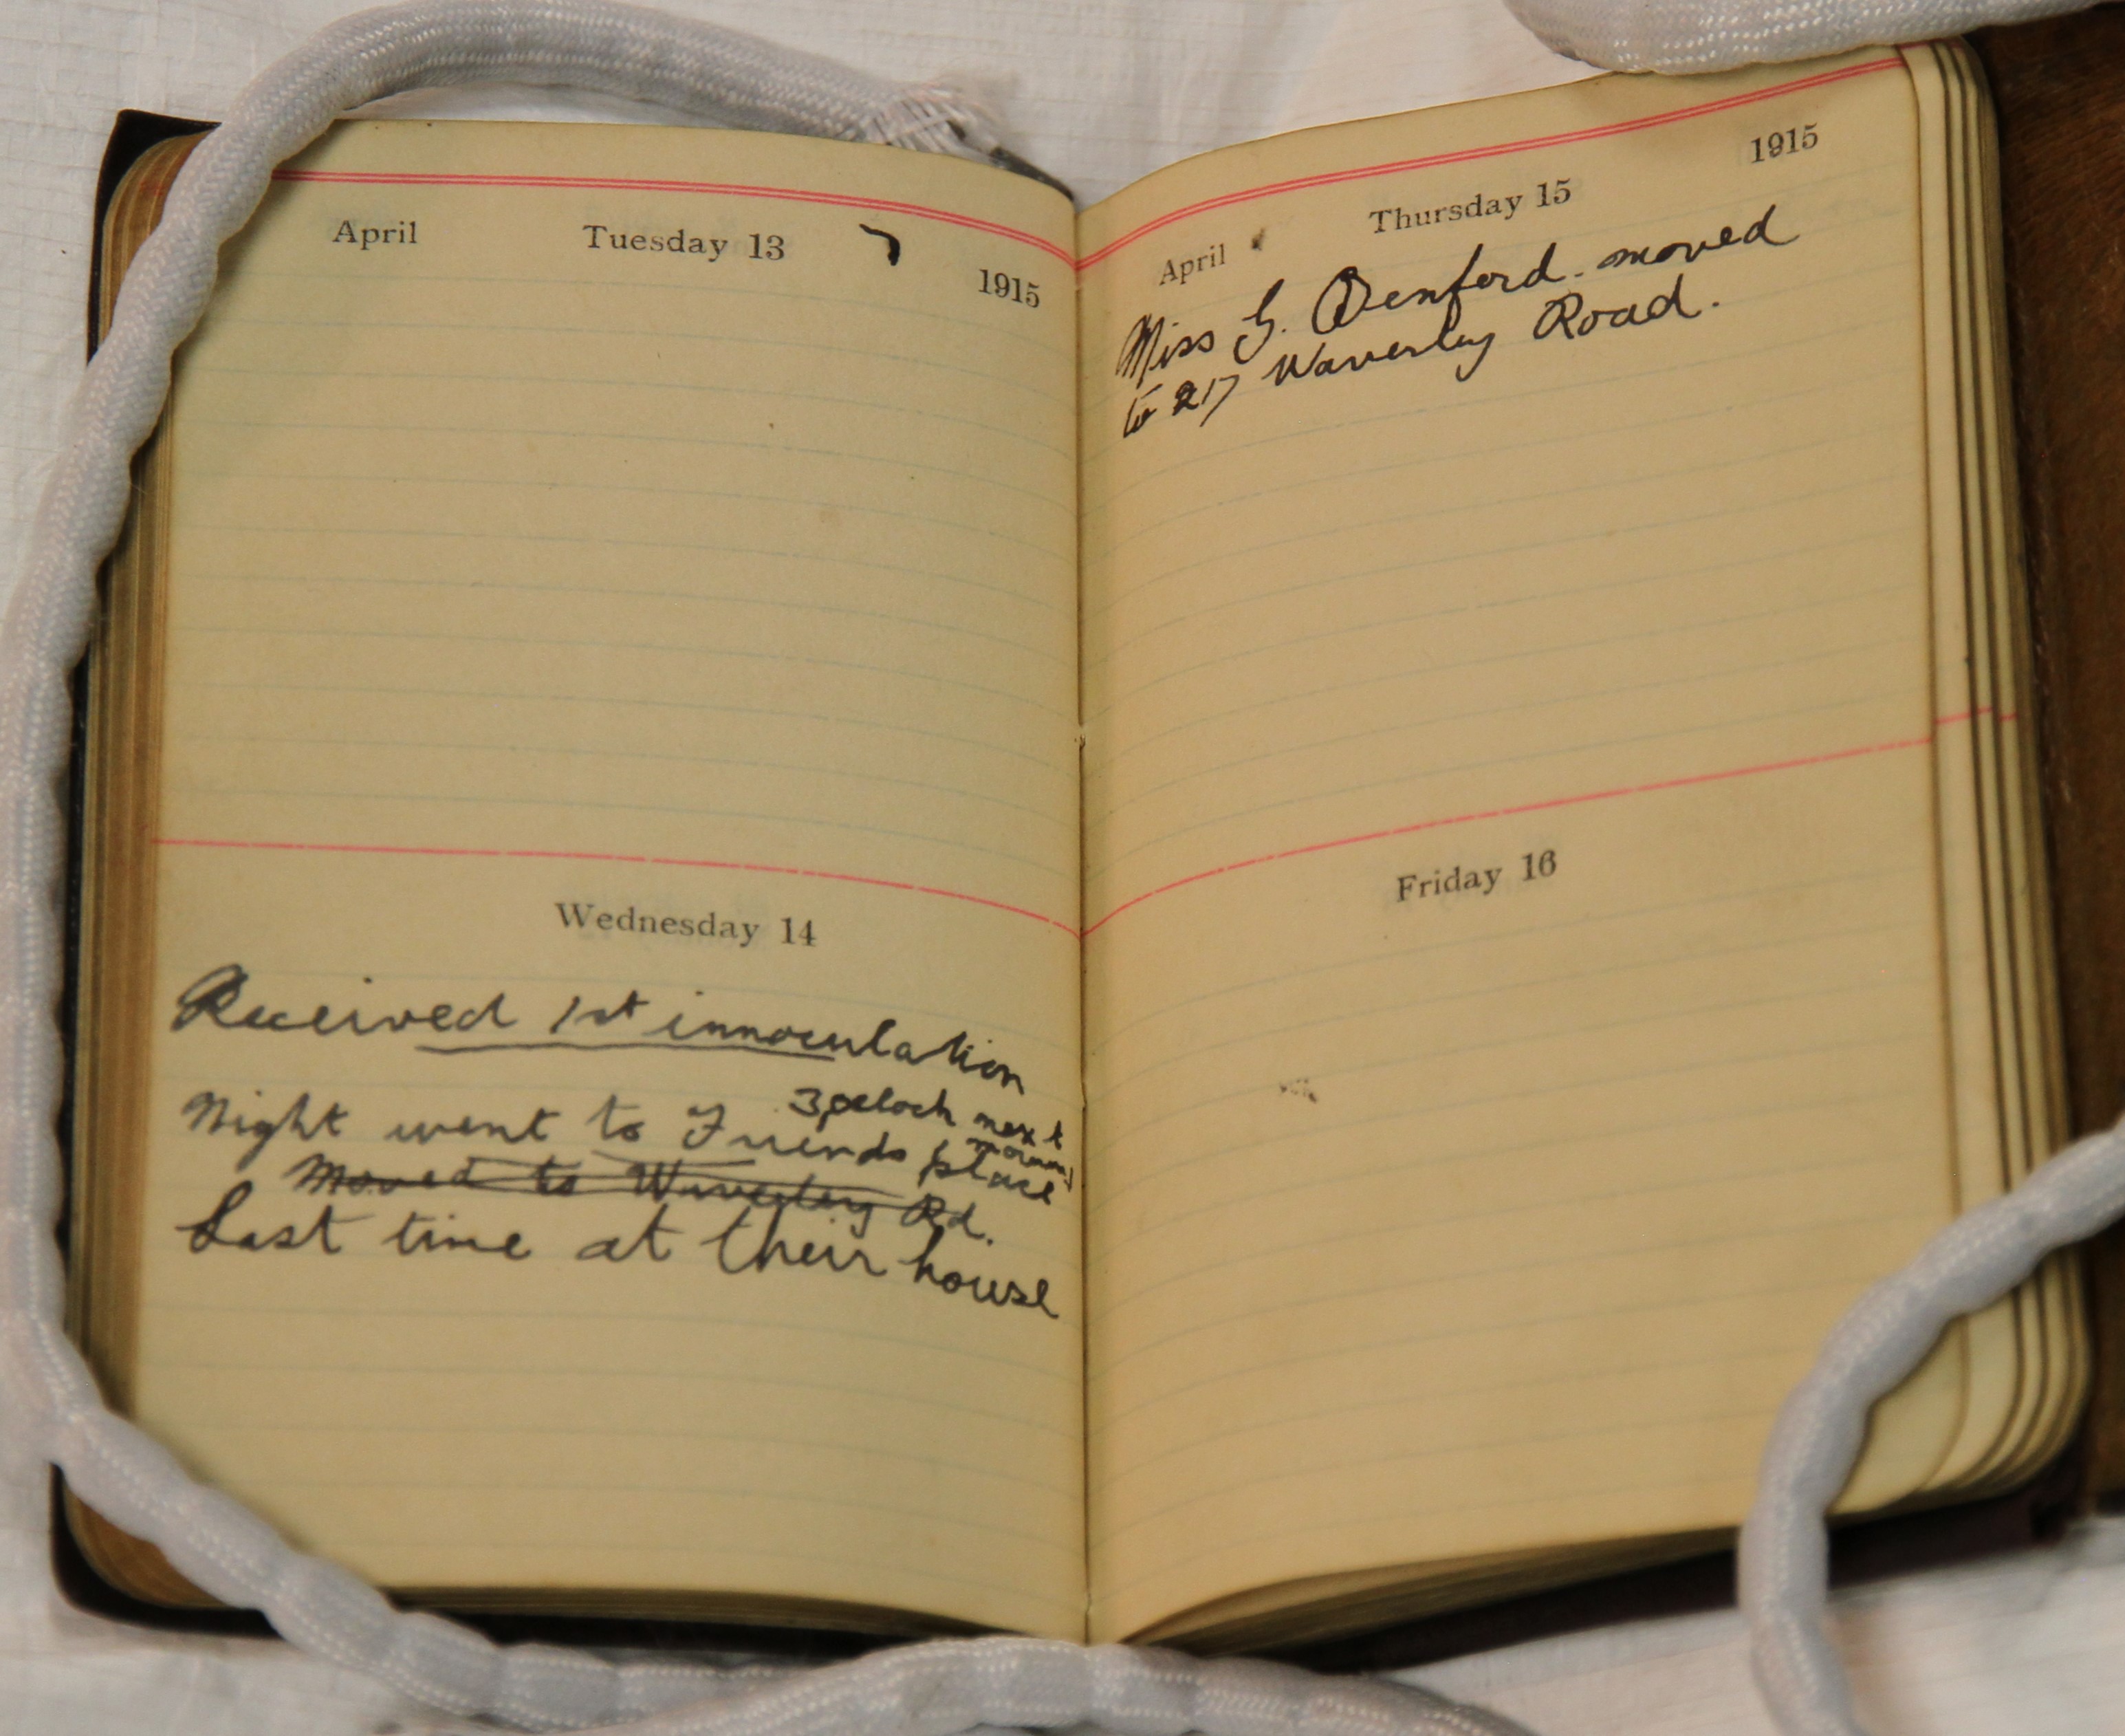 April Tuesday 13 1915
Wednesday 14
Received 1st innoculation
3 oclock next
Night went to Friends place
morning
Moved to Waverley Rd.
Last time at their house
April Thursday 15 1915
Miss G. Denford. moved
to 217 Waverley Road.
Friday 16